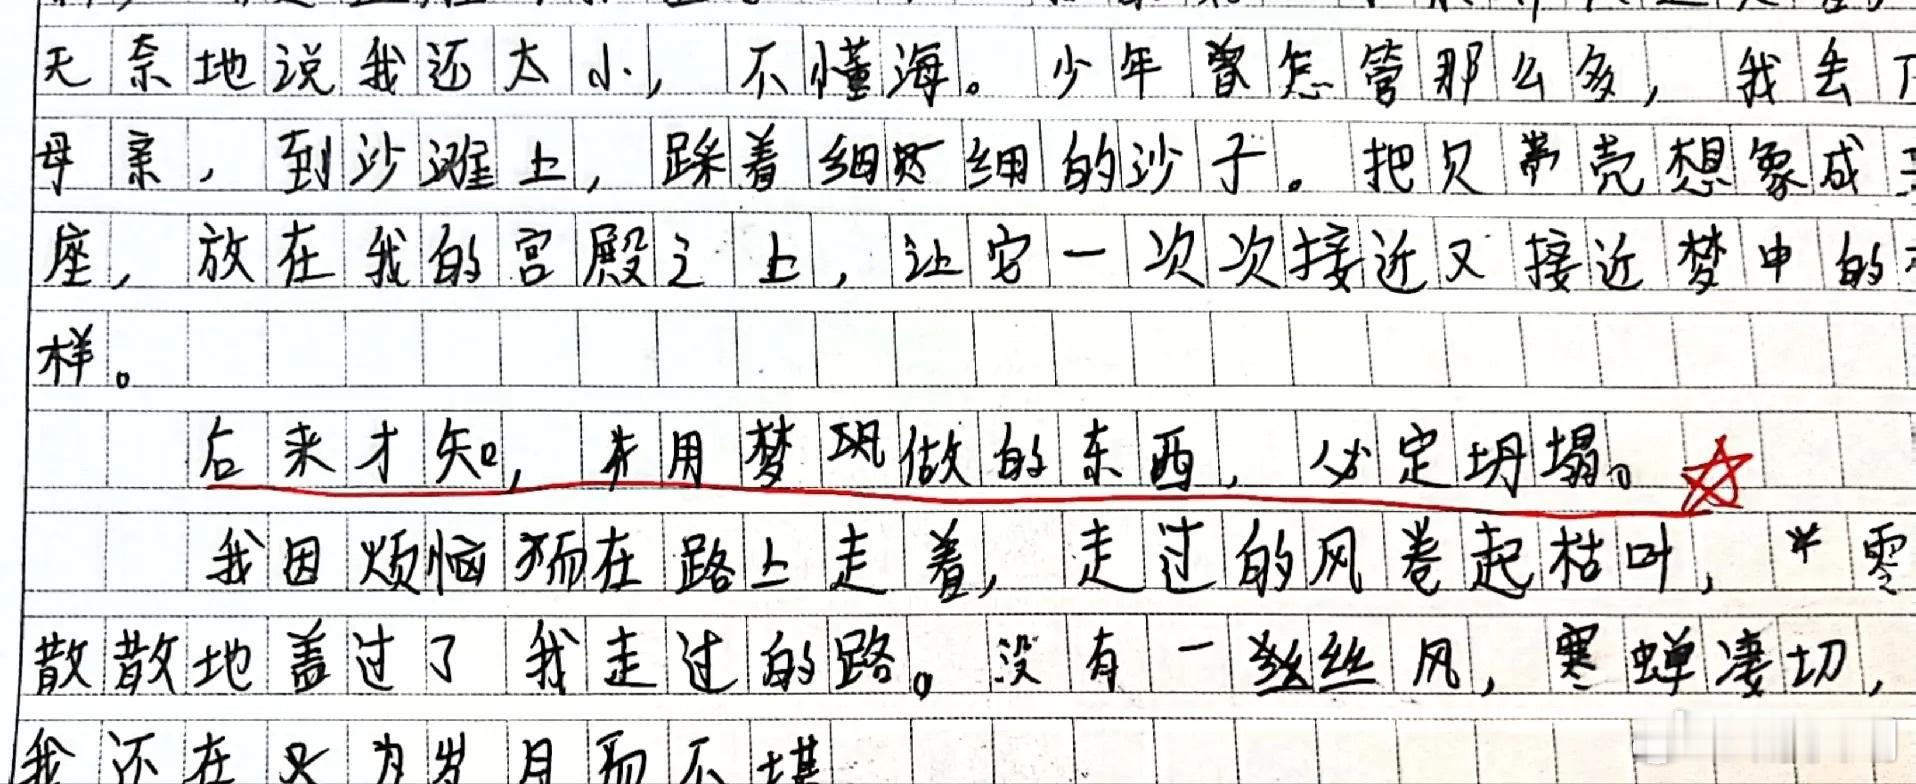 无奈地说我还太小，不懂海。少年曾怎管那么多，我丢下
母亲，到沙滩上，踩着细细的沙子。把贝壳想象成
座，放在我的宫殿之上，让它一次次接近又接近梦中的
样。
后来才知，用梦做的东西，必定坍塌。
我因烦恼而在路上走着，走过的风卷起枯叶，零
散散地盖过了我走过的路。没有一丝丝风，寒蝉凄切，
我还在为岁月而不堪